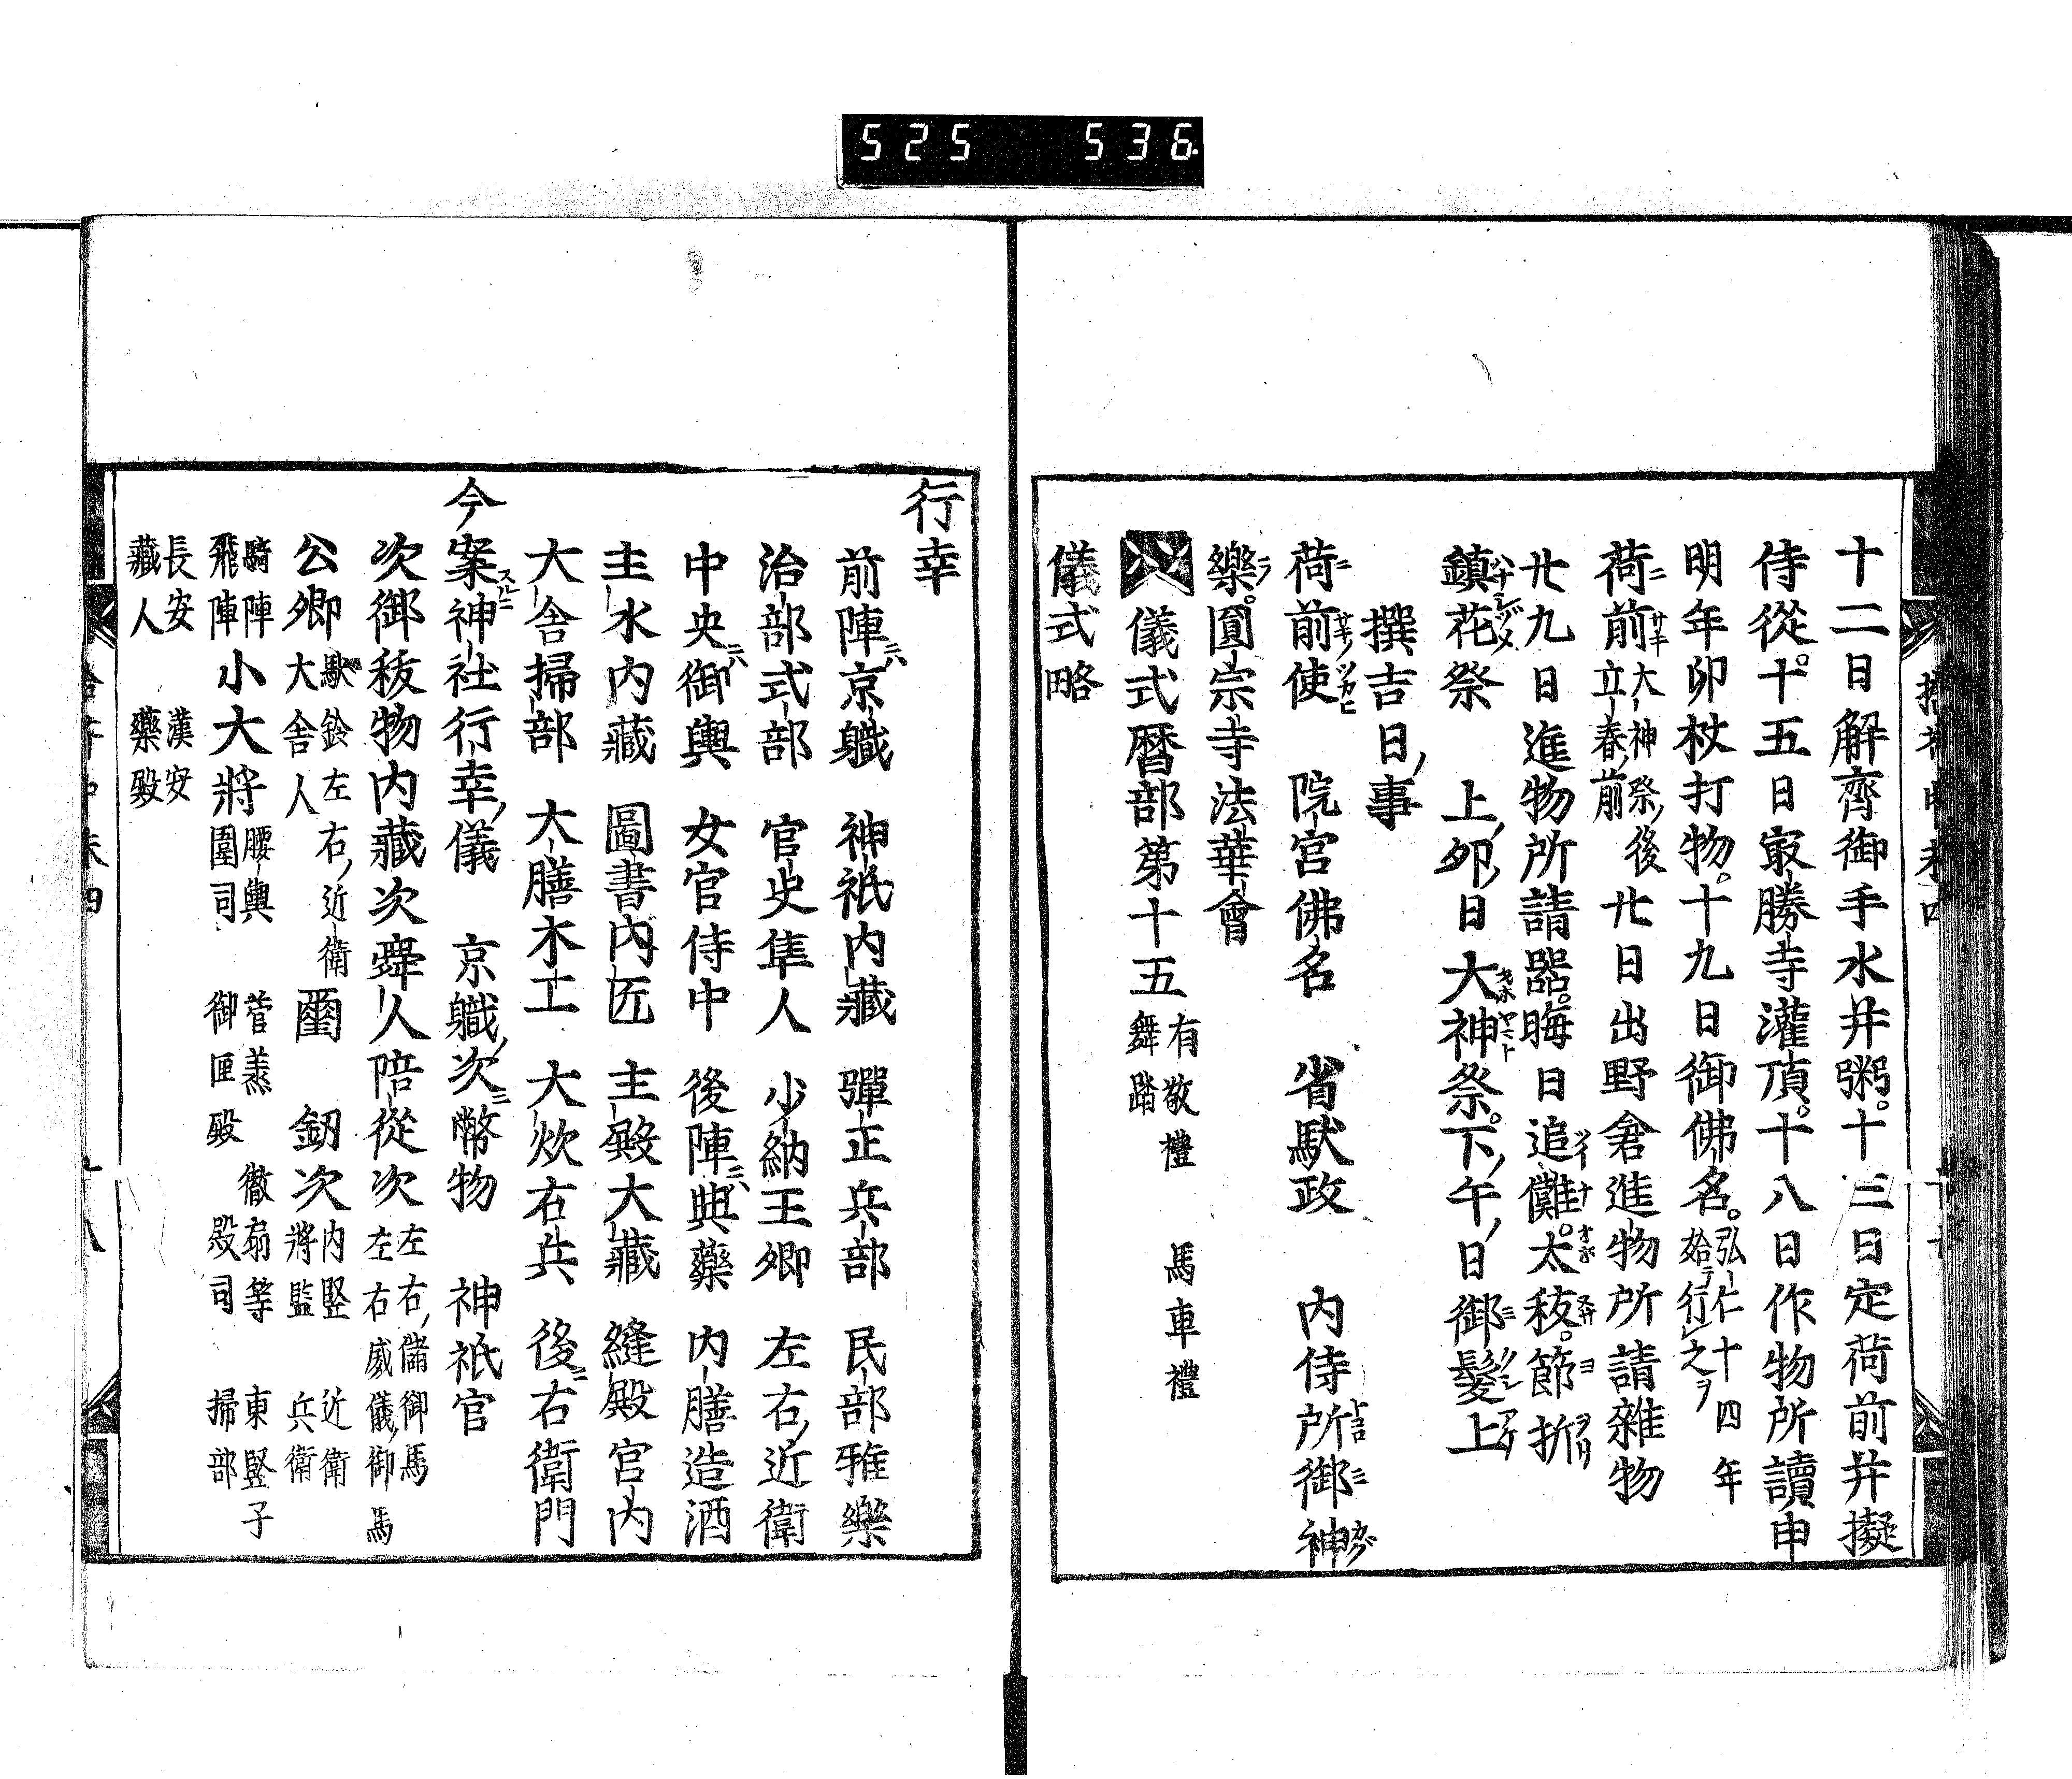 525 536
十二日解齊御手水井粥。十三日定荷前井擬
侍從。十五日㝡勝寺灌頂。十八日作物所讀申
明年卯杖打物。十九日御佛名。弘仁十四年始テ行之ヲ
荷前大神祭後立春前廿日出野倉進物所請雜物
廿九日進物所請器。晦日追儺。太秡。節折
鎮花祭 上卯日大神祭。下午日御髪上
撰吉日事
荷前使 院宮佛名 省馱政 内侍所御神
樂。圓宗寺法華會
儀式曆部第十五 有敬禮 馬車禮 舞踏
儀式略
行幸
前陣京職 神祇内藏 彈正兵部 民部雅樂
治部式部 官史隼人 少納王卿 左右近衛
中央御輿 女官侍中 後陣典藥 内膳造酒
主水内藏 圖書内匠 主殿大藏 縫殿官内
大舎掃部 大膳木工 大炊右兵 後右衛門
今案神社行幸儀 京職次幣物 神祇官
次御秡物内藏次舞人陪從次左右儲御馬左右威儀御馬
公卿 馱鈴左右近衛 大舎人 璽 釼次 内竪 將監 近衛 兵衛
騎陣 飛陣 小大將 腰輿 圍司 菅蓋 御匣殿 徹扇等 殿司 東竪子 掃部
長安 漢安
藏人 藥殿